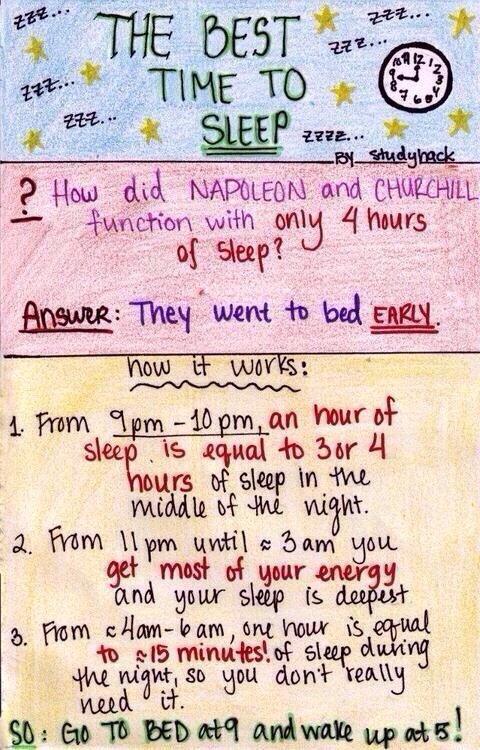 zzz... THE BEST zzz...
zzz... TIME TO zzz...
zzz... SLEEP zzzz...
BY studyhack
? How did NAPOLEON and CHURCHILL
function with only 4 hours
of sleep?
Answer: They went to bed EARLY.
how it works:
1. From 9pm - 10pm, an hour of
sleep is equal to 3 or 4
hours of sleep in the
middle of the night.
2. From 11pm until ≈ 3am you
get most of your energy
and your sleep is deepest
3. From ≈4am-6am, one hour is equal
to ≈15 minutes! of sleep during
the night, so you don't really
need it.
SO: GO TO BED at 9 and wake up at 5!